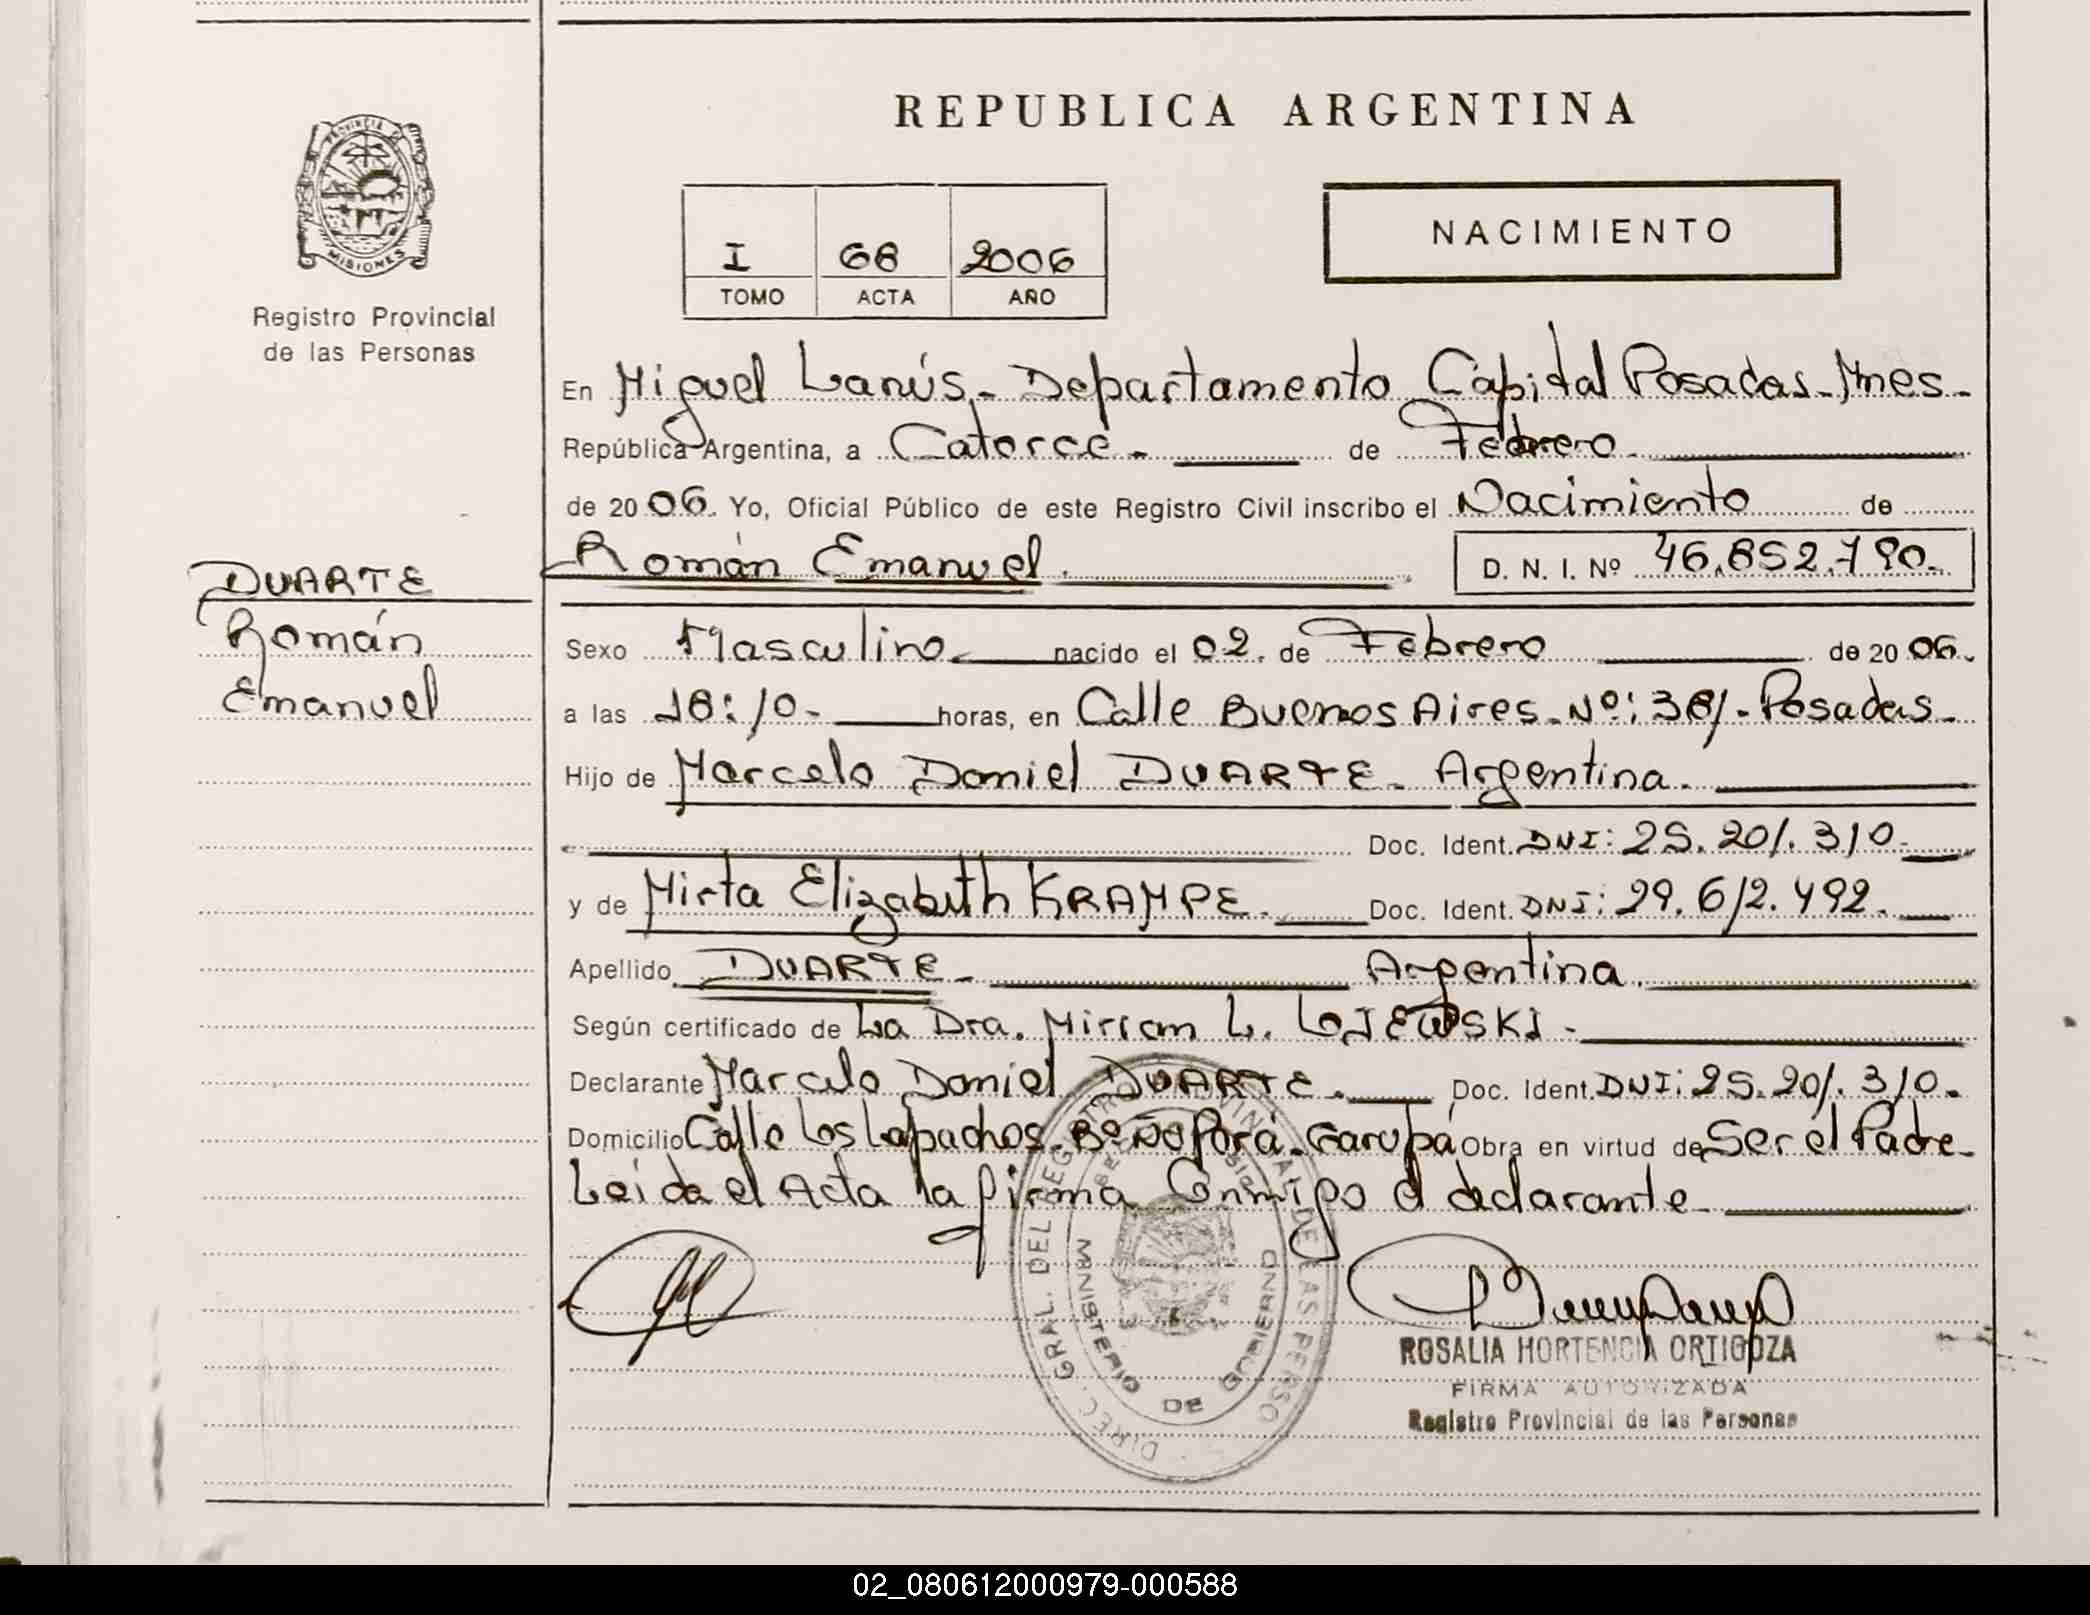 REPUBLICA ARGENTINA
PROVINCIA DE
MISIONES
Registro Provincial
de las Personas
I 68 2006
TOMO ACTA AÑO
NACIMIENTO
En Miguel Lanús.- Departamento Capital Posadas-Mnes-
República Argentina, a Catorce.- de Febrero.
de 2006. Yo, Oficial Público de este Registro Civil inscribo el Nacimiento de
Román Emanuel. D. N. I. Nº 46.852.790.-
DUARTE
Román
Emanuel
Sexo Masculino. nacido el 02. de Febrero de 2006.
a las 18:10.- horas, en Calle Buenos Aires.-Nº: 381.-Posadas.-
Hijo de Marcelo Daniel DUARTE.- Argentina.
Doc. Ident. DNI: 25.201.310.
y de Mirta Elizabeth KRAMPE. Doc. Ident. DNI: 29.612.492.
Apellido DUARTE.- Argentina.
Según certificado de La Dra. Mirian L. LOJEWSKI.-
Declarante Marcelo Daniel DUARTE. Doc. Ident. DNI: 25.201.310.
Domicilio Calle Los Lapachos. Bº Ñu Porá. Garupá Obra en virtud de Ser el Padre.
Leida el Acta la firma Conmigo el declarante.
DIREC. GRAL. DEL REGISTRO PROVINCIAL DE LAS PERSO
MINISTERIO DE GOBIERNO
ROSALIA HORTENCIA ORTIGOZA
FIRMA AUTORIZADA
Registro Provincial de las Personas
02_080612000979-000588